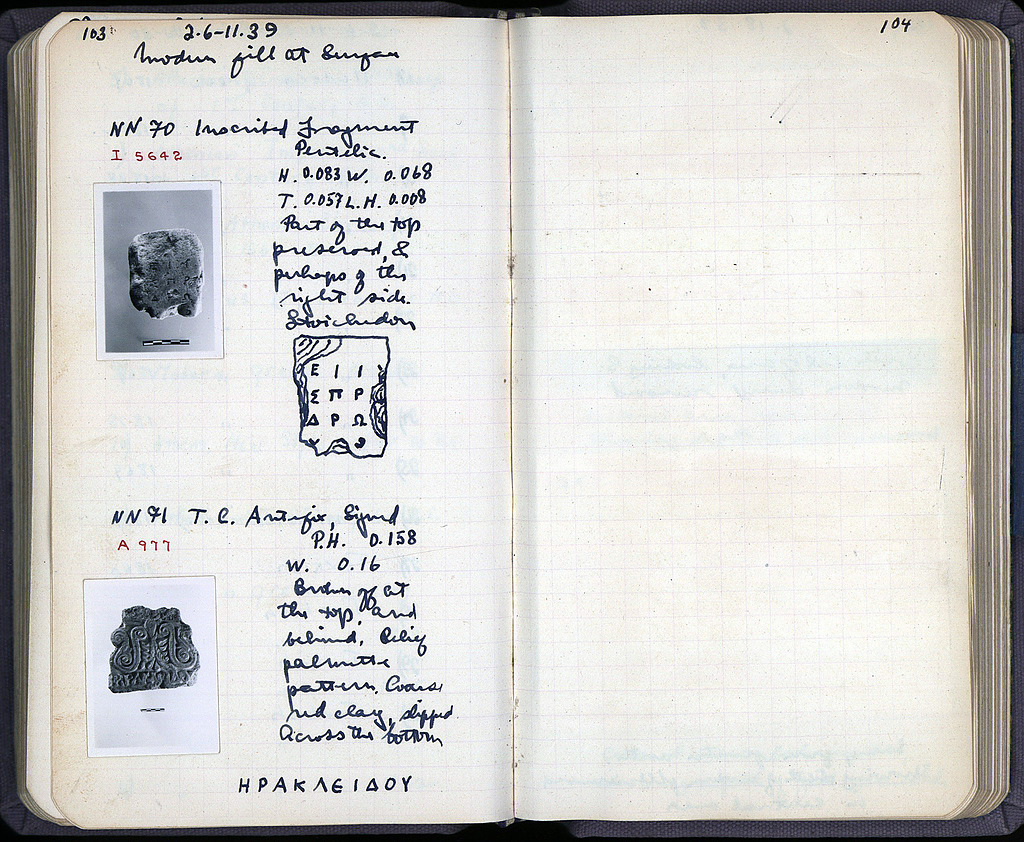 103
2·6-11·39
Modern fill at
NN 70 Inscribed Fragment
I 5642
Pentelic.
H. 0.083 W. 0.068
T. 0.057 L.H. 0.008
Part of the top
preserved, &
perhaps of the
right side.
Stoichedon
Ε Ι Ι
Σ Π Ρ
Δ Ρ Ω
NN 71 T.C. Antefix, Signed
A 977
P.H. 0.158
W. 0.16
Broken off at
the top, and
behind. Relief
palmette
pattern. Coarse
red clay, slipped.
Across the bottom
ΗΡΑΚΛΕΙΔΟΥ
104